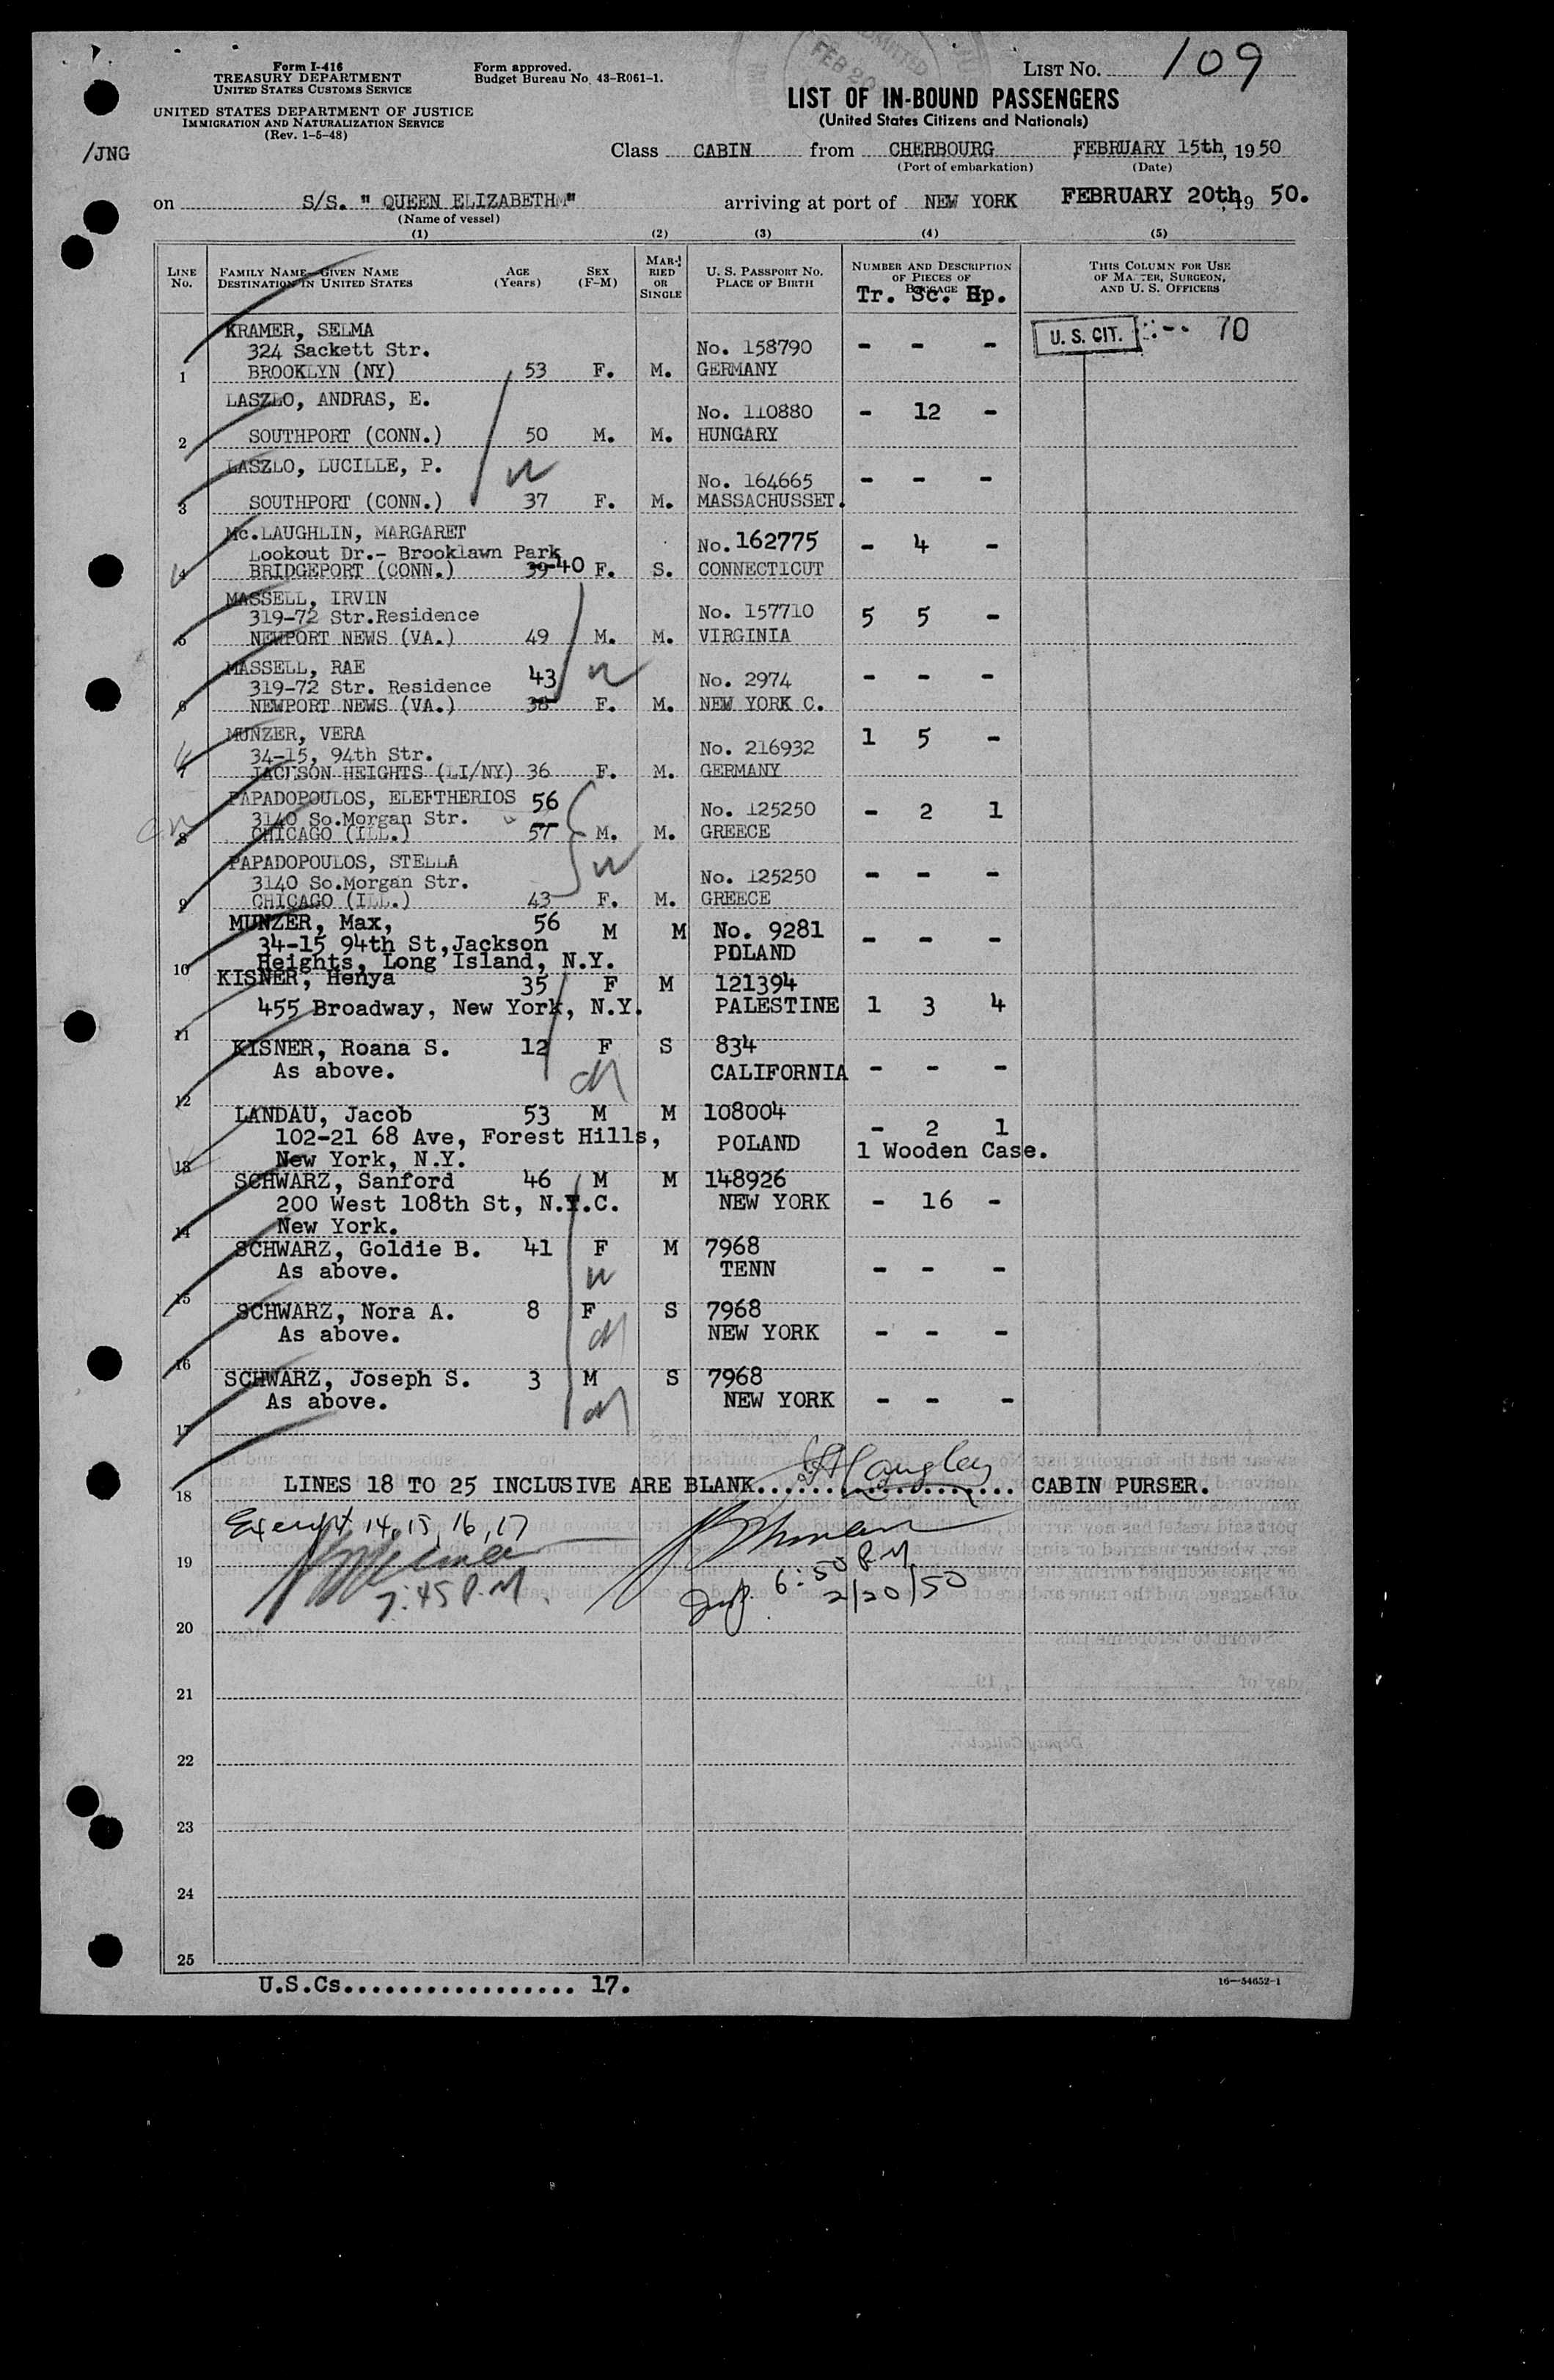 ADMITTED
FEB 20
Form I-416
TREASURY DEPARTMENT
UNITED STATES CUSTOMS SERVICE
UNITED STATES DEPARTMENT OF JUSTICE
IMMIGRATION AND NATURALIZATION SERVICE
(Rev. 1-5-48)
Form approved.
Budget Bureau No. 43-R061-1.
LIST NO. 109
LIST OF IN-BOUND PASSENGERS
(United States Citizens and Nationals)
/JNG
Class CABIN from CHERBOURG FEBRUARY 15th, 1950
(Port of embarkation) (Date)
on S/S. " QUEEN ELIZABETH" arriving at port of NEW YORK FEBRUARY 20th, 19 50.
(Name of vessel)
(1) (2) (3) (4) (5)
LINE NO.
FAMILY NAME—GIVEN NAME
DESTINATION IN UNITED STATES
AGE (Years)
SEX (F-M)
MARRIED OR SINGLE
U. S. PASSPORT NO.
PLACE OF BIRTH
NUMBER AND DESCRIPTION OF PIECES OF BAGGAGE
Tr. Sc. Hp.
THIS COLUMN FOR USE OF MASTER, SURGEON, AND U. S. OFFICERS
U. S. CIT. 70
KRAMER, SELMA
324 Sackett Str. No. 158790 - - -
1 BROOKLYN (NY) 53 F. M. GERMANY
LASZLO, ANDRAS, E. No. 110880 - 12 -
2 SOUTHPORT (CONN.) 50 M. M. HUNGARY
LASZLO, LUCILLE, P. No. 164665 - - -
3 SOUTHPORT (CONN.) 37 F. M. MASSACHUSSET.
Mc.LAUGHLIN, MARGARET
Lookout Dr.- Brooklawn Park No. 162775 - 4 -
4 BRIDGEPORT (CONN.) 39 40 F. S. CONNECTICUT
MASSELL, IRVIN
319-72 Str.Residence No. 157710 5 5 -
5 NEWPORT NEWS (VA.) 49 M. M. VIRGINIA
MASSELL, RAE 43
319-72 Str. Residence No. 2974 - - -
6 NEWPORT NEWS (VA.) 38 F. M. NEW YORK C.
MUNZER, VERA
34-15, 94th Str. No. 216932 1 5 -
7 JACKSON HEIGHTS (LI/NY) 36 F. M. GERMANY
PAPADOPOULOS, ELEFTHERIOS 56
3140 So.Morgan Str. No. 125250 - 2 1
8 CHICAGO (ILL.) 57 M. M. GREECE
PAPADOPOULOS, STELLA
3140 So.Morgan Str. No. 125250 - - -
9 CHICAGO (ILL.) 43 F. M. GREECE
MUNZER, Max, 56 M M No. 9281
34-15 94th St,Jackson POLAND - - -
10 Heights, Long Island, N.Y.
KISNER, Henya 35 F M 121394
455 Broadway, New York, N.Y. PALESTINE 1 3 4
11
KISNER, Roana S. 12 F S 834
As above. CALIFORNIA - - -
12
LANDAU, Jacob 53 M M 108004
102-21 68 Ave, Forest Hills, POLAND - 2 1
13 New York, N.Y. 1 Wooden Case.
SCHWARZ, Sanford 46 M M 148926
200 West 108th St, N.Y.C. NEW YORK - 16 -
14 New York.
SCHWARZ, Goldie B. 41 F M 7968
As above. TENN - - -
15
SCHWARZ, Nora A. 8 F S 7968
As above. NEW YORK - - -
16
SCHWARZ, Joseph S. 3 M S 7968
As above. NEW YORK - - -
17
18 LINES 18 TO 25 INCLUSIVE ARE BLANK.................... CABIN PURSER.
Except 14, 15, 16, 17
19
7:45 P.M.
6:50 P.M.
Insp. 2/20/50
20
21
22
23
24
25
U.S.Cs.................. 17.
16—54652-1